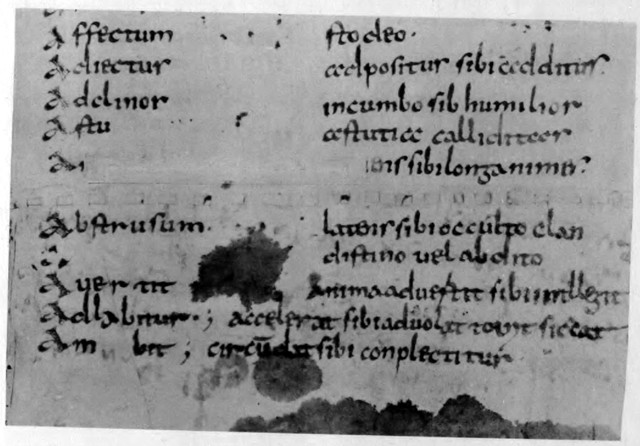 Affectum sto deo·
Adiectus adpositus sibi additus·
Adclinor incumbo sib humilior
Astu astutia calliditas
sibi longanimes·
Abstrusum· latens sibi occulto clan
distino uel abdito
Auertit animaaduertit sibi intllegit
Adlabitur·; accelerat sibi aduolat siccat
Am bit ; circūdat sibi conplectitur